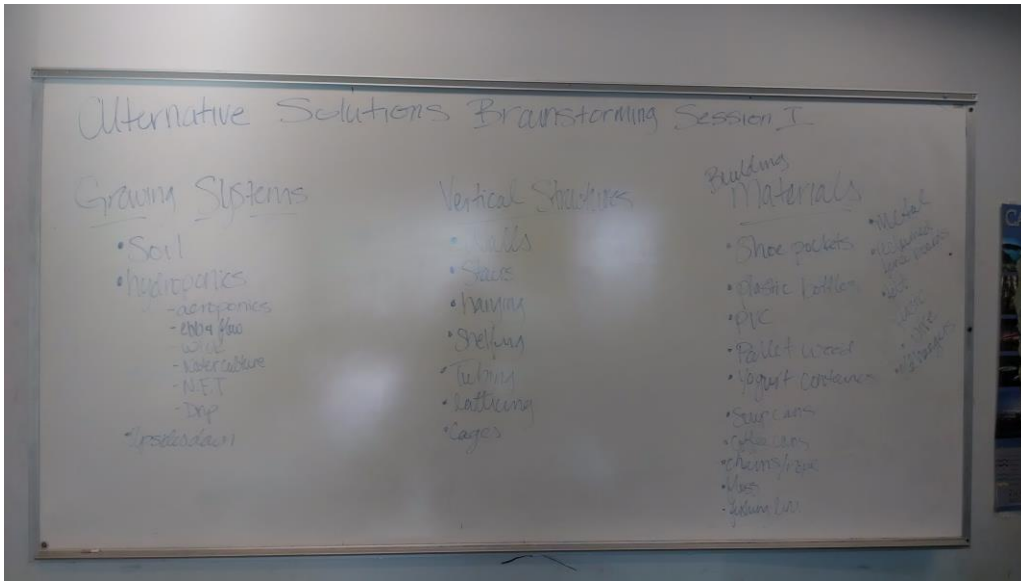 Alternative Solutions Brainstorming Session I
Growing Systems
• Soil
• hydroponics
- aeroponics
- ebb & flow
- Water culture
- N.F.T
- Drip
• Upsidedown
Vertical Structures
• Walls
• Stairs
• hanging
• Shelfing
• Tubing
• Latticing
• Cages
Building
Materials
• Shoe pockets
• plastic bottles
• PVC
• Pallet wood
• Yogurt containers
• Soup cans
• Coffee cans
• chains/rope
• Metal
• Wire